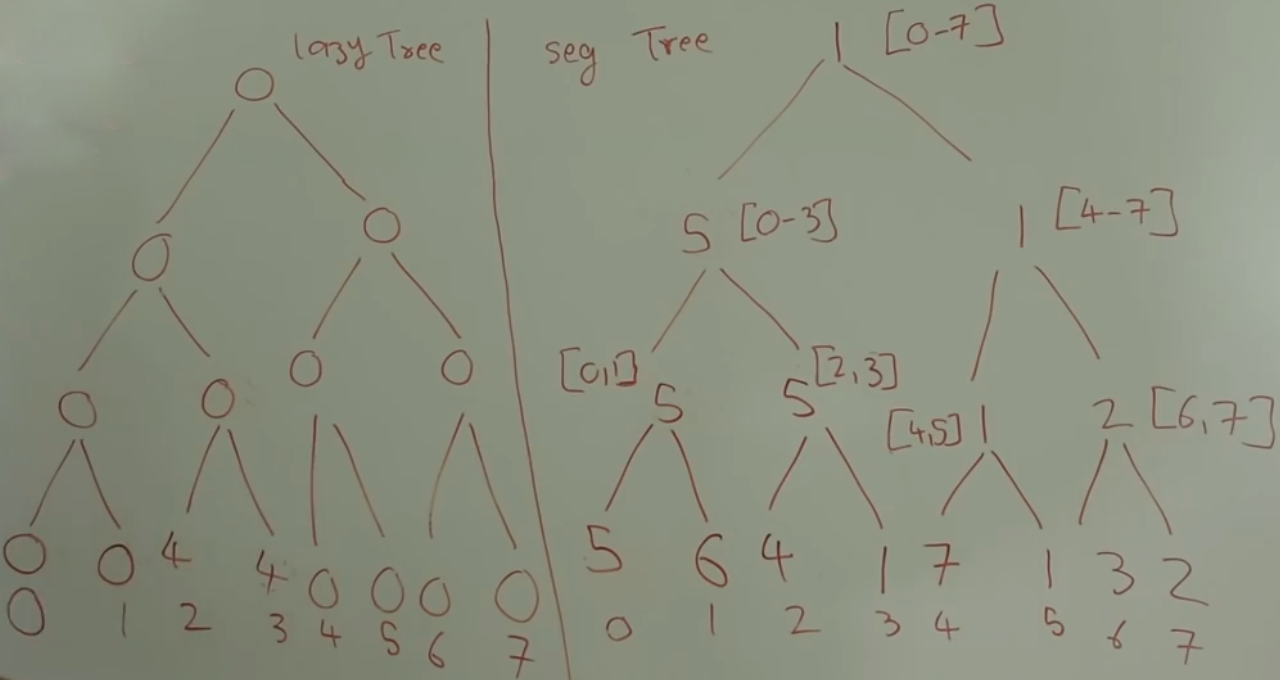 lazy Tree
0
0 0
0 0 0 0
0 0 4 4 0 0 0 0
0 1 2 3 4 5 6 7
seg Tree
1 [0-7]
5 [0-3] 1 [4-7]
[0,1] 5 5 [2,3] [4,5] 1 2 [6,7]
5 6 4 1 7 1 3 2
0 1 2 3 4 5 6 7